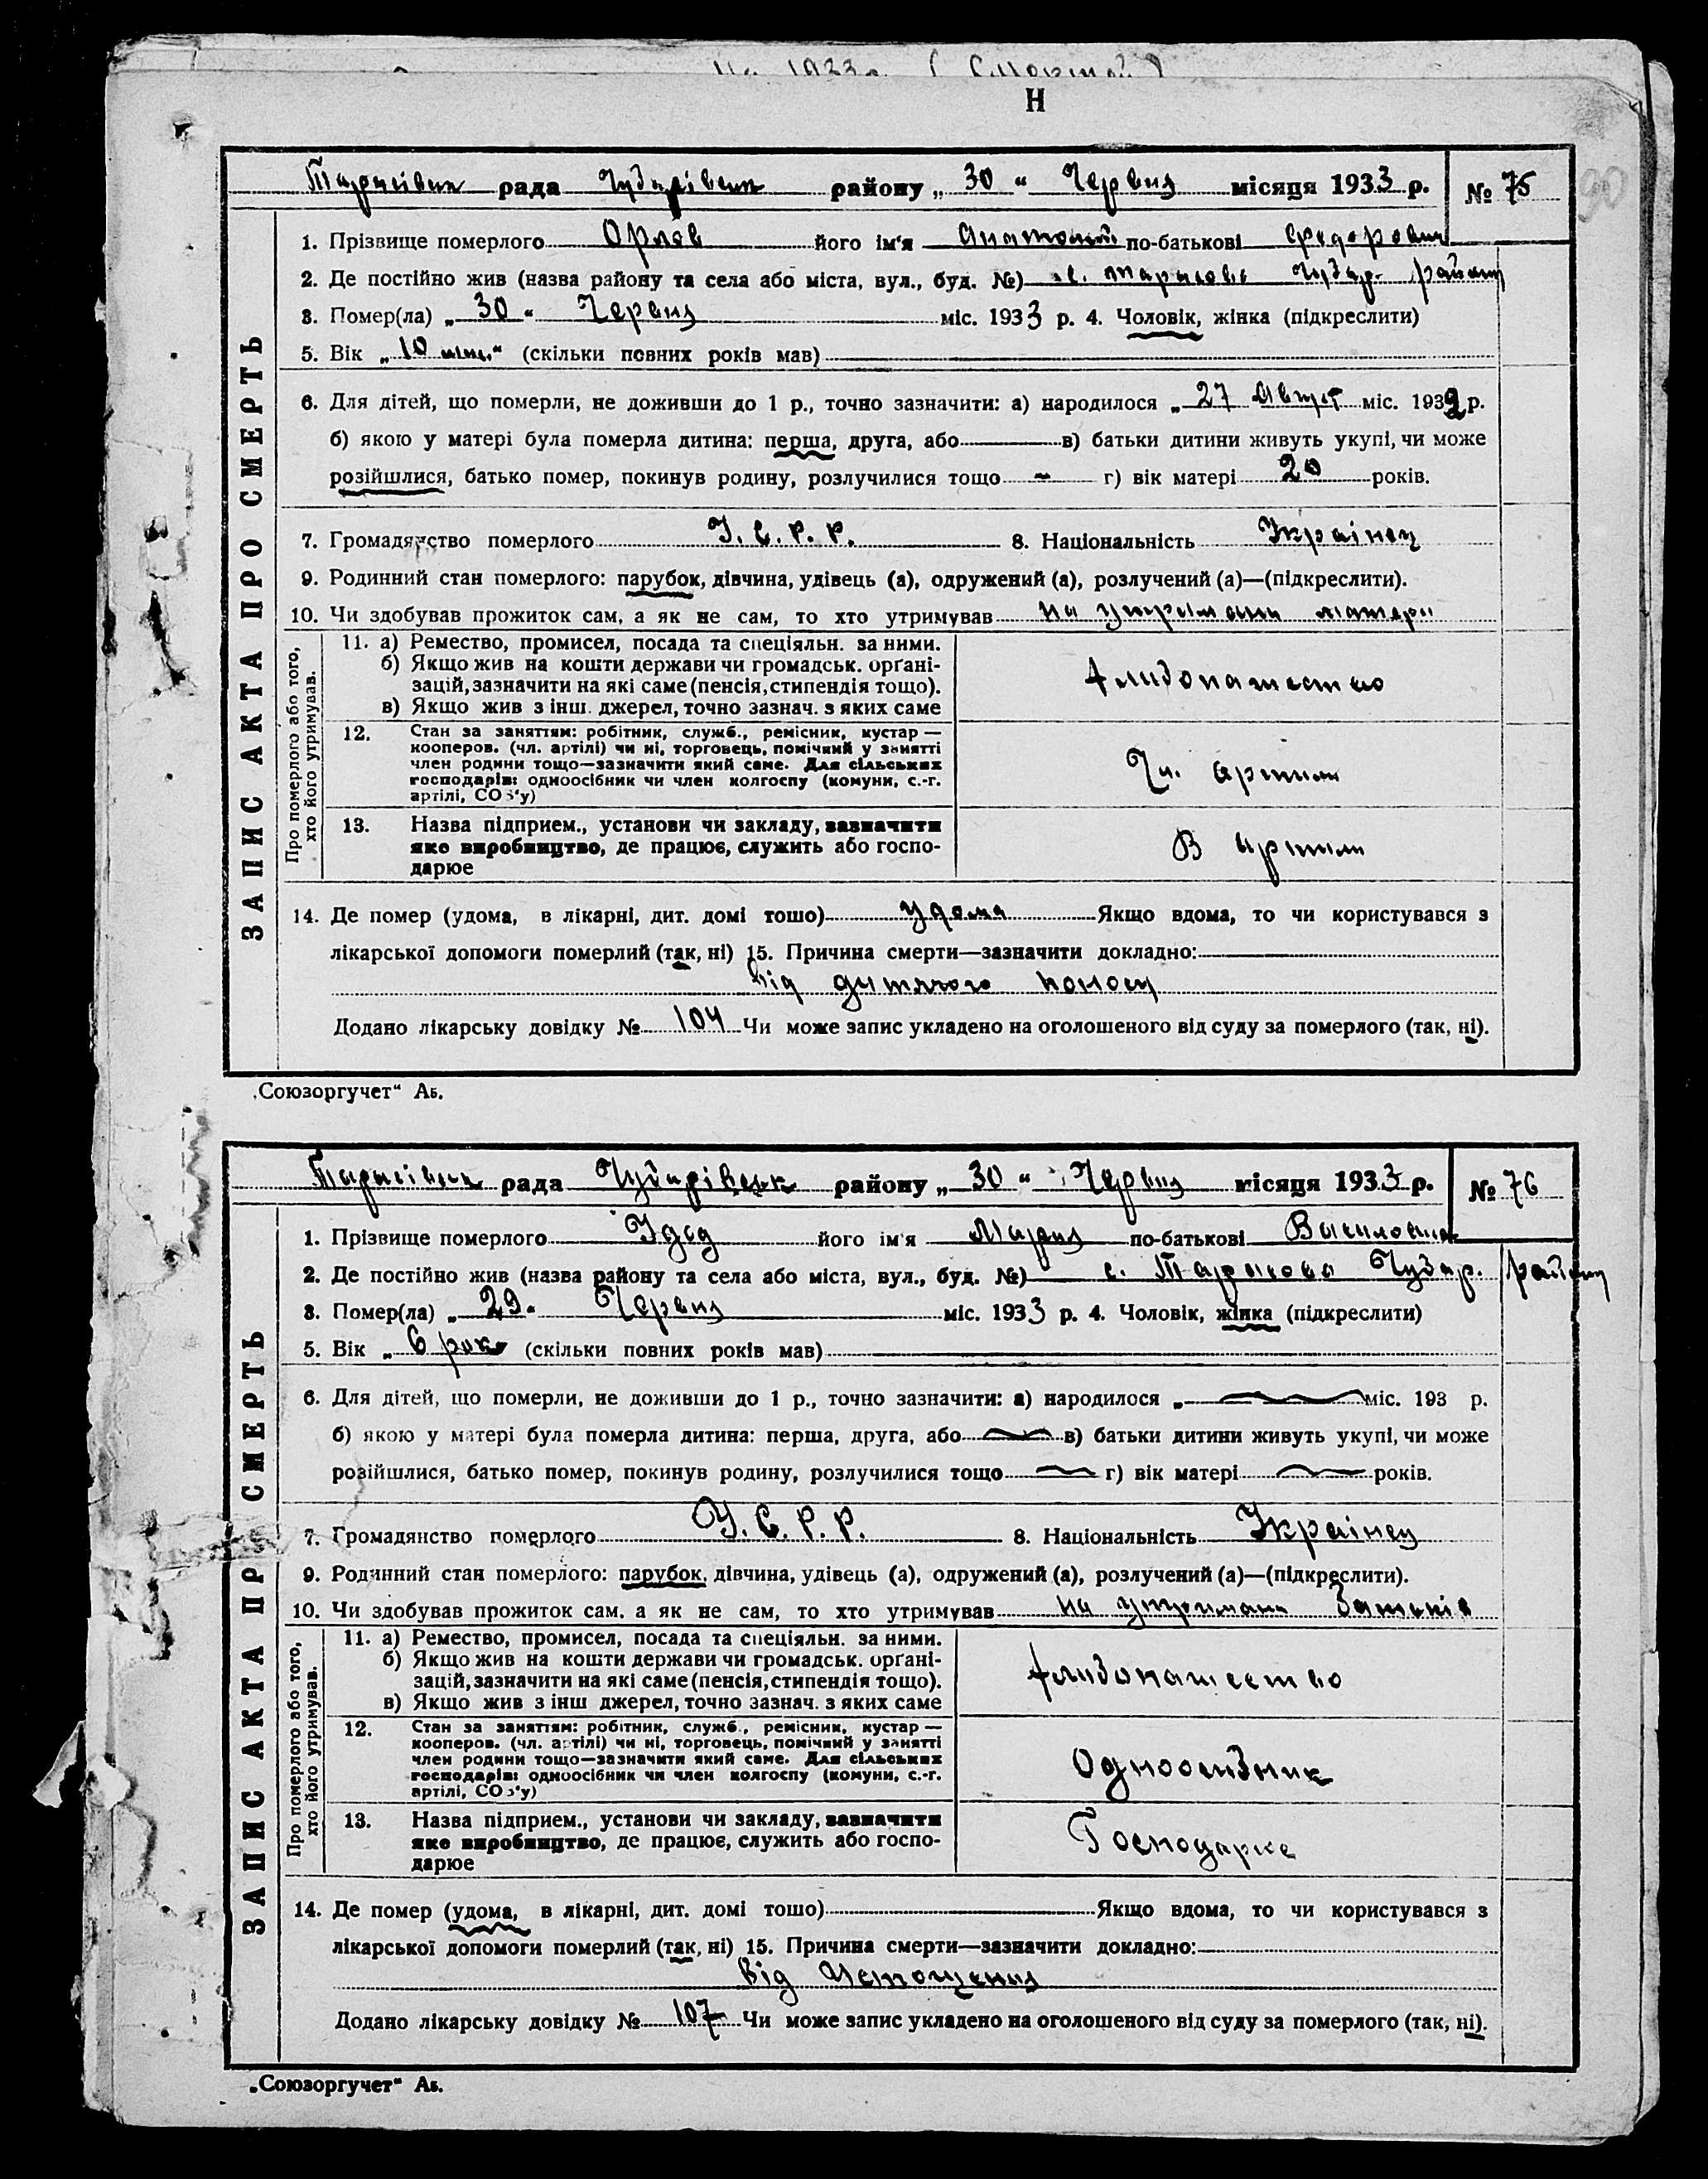 Н
Тарасівськ рада Чубарівськ району „ 30 “ Червня місяця 1933 р. № 75
1. Прізвище померлого Орлов його ім'я Анатолій по-батькові Федорович
2. Де постійно жив (назва району та села або міста, вул., буд. №) с. Тарасовка Чубар. району
3. Помер(ла) „ 30 “ Червня міс. 1933 р. 4. Чоловік, жінка (підкреслити)
5. Вік „ 10 міс. “ (скільки повних років мав)
6. Для дітей, що померли, не доживши до 1 р., точно зазначити: а) народилося „ 27 Август міс. 1932 р.
б) якою у матері була померла дитина: перша, друга, або в) батьки дитини живуть укупі, чи може
розійшлися, батько помер, покинув родину, розлучилися тощо - г) вік матері 20 років.
7. Громадянство померлого У. С. Р. Р. 8. Національність Українец
9. Родинний стан померлого: парубок, дівчина, удівець (а), одружений (а), розлучений (а)—(підкреслити).
10. Чи здобував прожиток сам, а як не сам, то хто утримував на утриманні матери
ЗАПИС АКТА ПРО СМЕРТЬ
Про померлого або того, хто його утримував.
11. а) Ремество, промисел, посада та спеціяльн. за ними.
б) Якщо жив на кошти держави чи громадськ. орґані-
зацій, зазначити на які саме (пенсія, стипендія тощо).
в) Якщо жив з інш. джерел, точно зазнач. з яких саме
Хлібопашество
12. Стан за заняттям: робітник, служб., ремісник, кустар —
кооперов. (чл. артілі) чи ні, торговець, помічний у занятті
член родини тощо—зазначити який саме. Для сільських
господарів: одноосібник чи член колгоспу (комуни, с.-г.
артілі, СОЗ'у)
Чл. артили
13. Назва підприєм., установи чи закладу, зазначити
яке виробництво, де працює, служить або госпо-
дарює
В артили
14. Де помер (удома, в лікарні, дит. домі тошо) удома Якщо вдома, то чи користувався з
лікарської допомоги померлий (так, ні) 15. Причина смерти—зазначити докладно:
Від дитячого поносу
Додано лікарську довідку № 104 Чи може запис укладено на оголошеного від суду за померлого (так, ні).
„Союзоргучет“ Аб.
Тарасівськ рада Чубарівськ району „ 30 “ Червня місяця 1933 р. № 76
1. Прізвище померлого його ім'я Мария по-батькові
2. Де постійно жив (назва району та села або міста, вул., буд. №) с. Тарасовка Чубар. району
3. Помер(ла) „ 29 “ Червня міс. 1933 р. 4. Чоловік, жінка (підкреслити)
5. Вік „ 6 рок (скільки повних років мав)
6. Для дітей, що померли, не доживши до 1 р., точно зазначити: а) народилося „ міс. 193 р.
б) якою у матері була померла дитина: перша, друга, або в) батьки дитини живуть укупі, чи може
розійшлися, батько помер, покинув родину, розлучилися тощо г) вік матері років.
7. Громадянство померлого У. С. Р. Р. 8. Національність Українец
9. Родинний стан померлого: парубок, дівчина, удівець (а), одружений (а), розлучений (а)—(підкреслити).
10. Чи здобував прожиток сам, а як не сам, то хто утримував на утримани Батьків
ЗАПИС АКТА ПРО СМЕРТЬ
Про померлого або того, хто його утримував.
11. а) Ремество, промисел, посада та спеціяльн. за ними.
б) Якщо жив на кошти держави чи громадськ. орґані-
зацій, зазначити на які саме (пенсія, стипендія тощо).
в) Якщо жив з інш джерел, точно зазнач. з яких саме
Хлібопашество
12. Стан за заняттям: робітник, служб., ремісник, кустар —
кооперов. (чл. артілі) чи ні, торговець, помічний у занятті
член родини тощо—зазначити який саме. Для сільських
господарів: одноосібник чи член колгоспу (комуни, с.-г.
артілі, СОЗ'у)
Одноосібник
13. Назва підприєм., установи чи закладу, зазначити
яке виробництво, де працює, служить або госпо-
дарює
Господарка
14. Де помер (удома, в лікарні, дит. домі тошо) Якщо вдома, то чи користувався з
лікарської допомоги померлий (так, ні) 15. Причина смерти—зазначити докладно:
Від Истощения
Додано лікарську довідку № 107 Чи може запис укладено на оголошеного від суду за померлого (так, ні).
„Союзоргучет“ Аб.